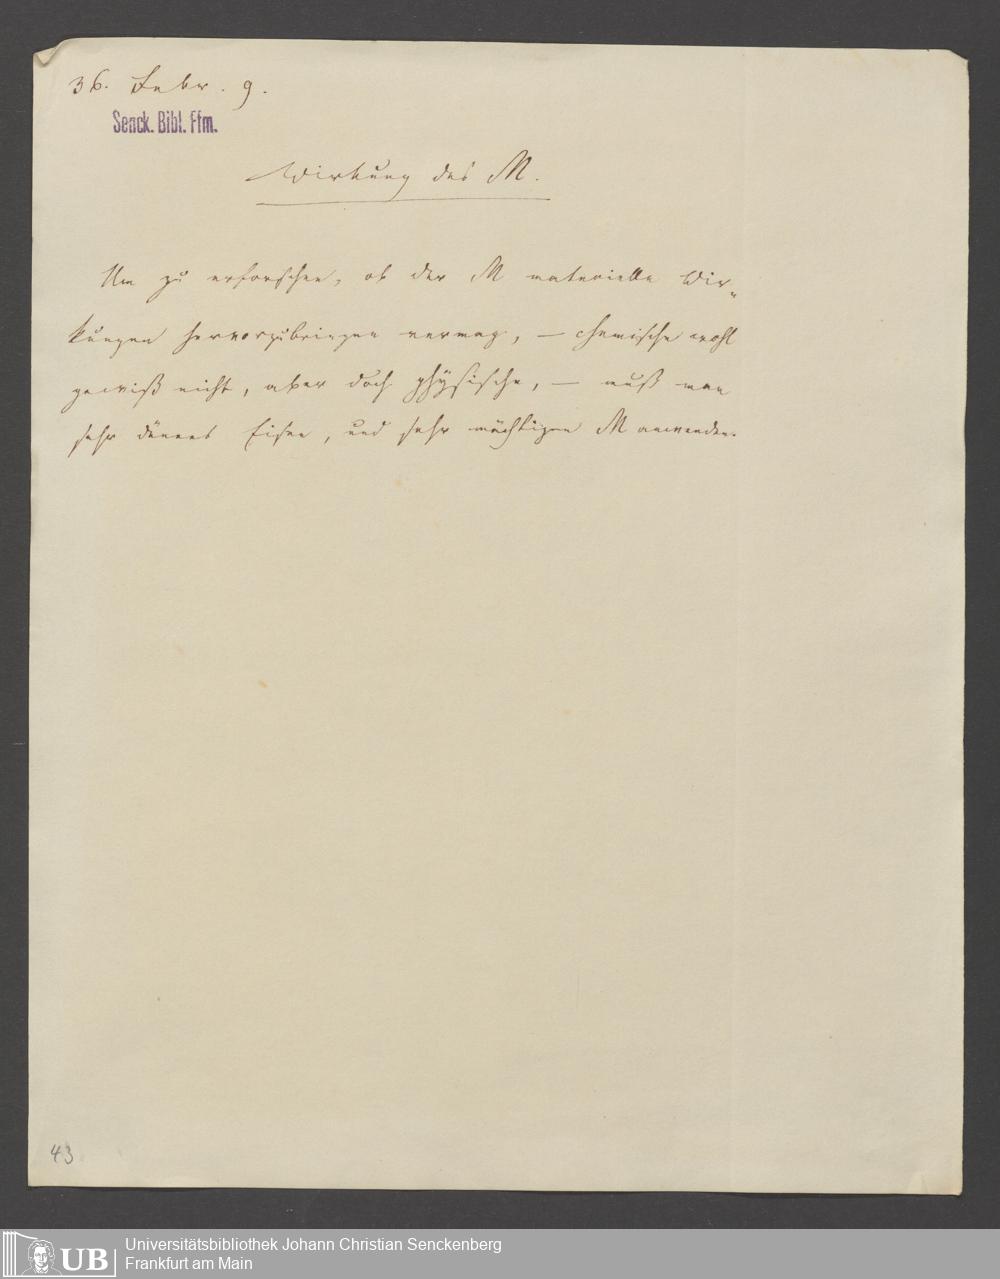 36. Febr. 9.
Senck. Bibl. Ffm.
Wirkung des M.
Um zu erforschen, ob der M materielle Wir-
kungen hervorzubringen vermag, — chemische wohl
gewiß nicht, aber doch physische, — muß man
sehr dünnes Eisen, und sehr mächtigen M anwenden.
43
UB
Universitätsbibliothek Johann Christian Senckenberg
Frankfurt am Main